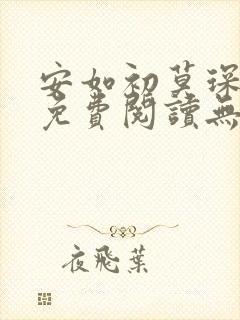 安如初莫琛
免費閱讀無
夜飛葉